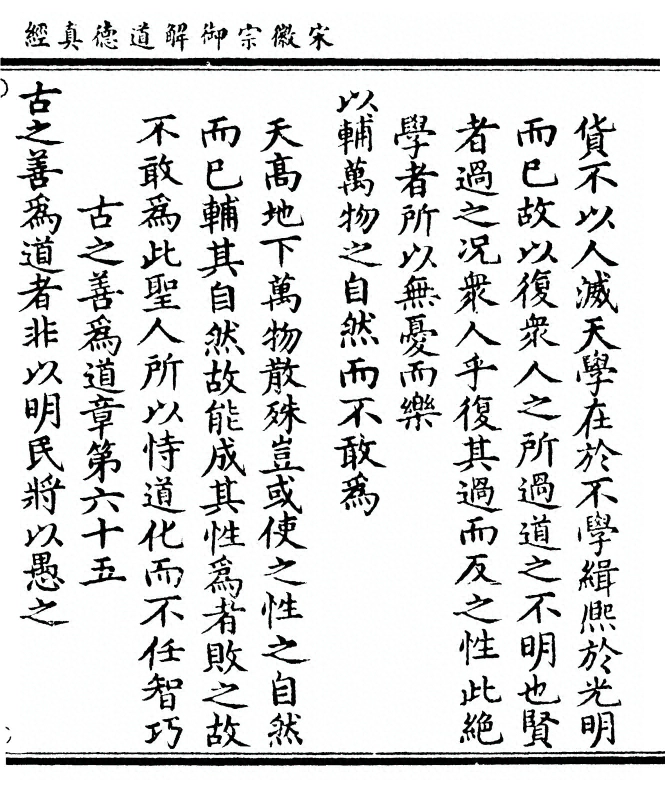 宋徽宗御解道德真經
貨不以人滅天學在於不學緝熈於光明
而已故以復衆人之所過道之不明也賢
者過之况衆人乎復其過而反之性此絶
學者所以無憂而樂
以輔萬物之自然而不敢爲
天髙地下萬物散殊豈或使之性之自然
而已輔其自然故能成其性爲者敗之故
不敢爲此聖人所以恃道化而不任智巧
古之善爲道章第六十五
古之善爲道者非以明民將以愚之